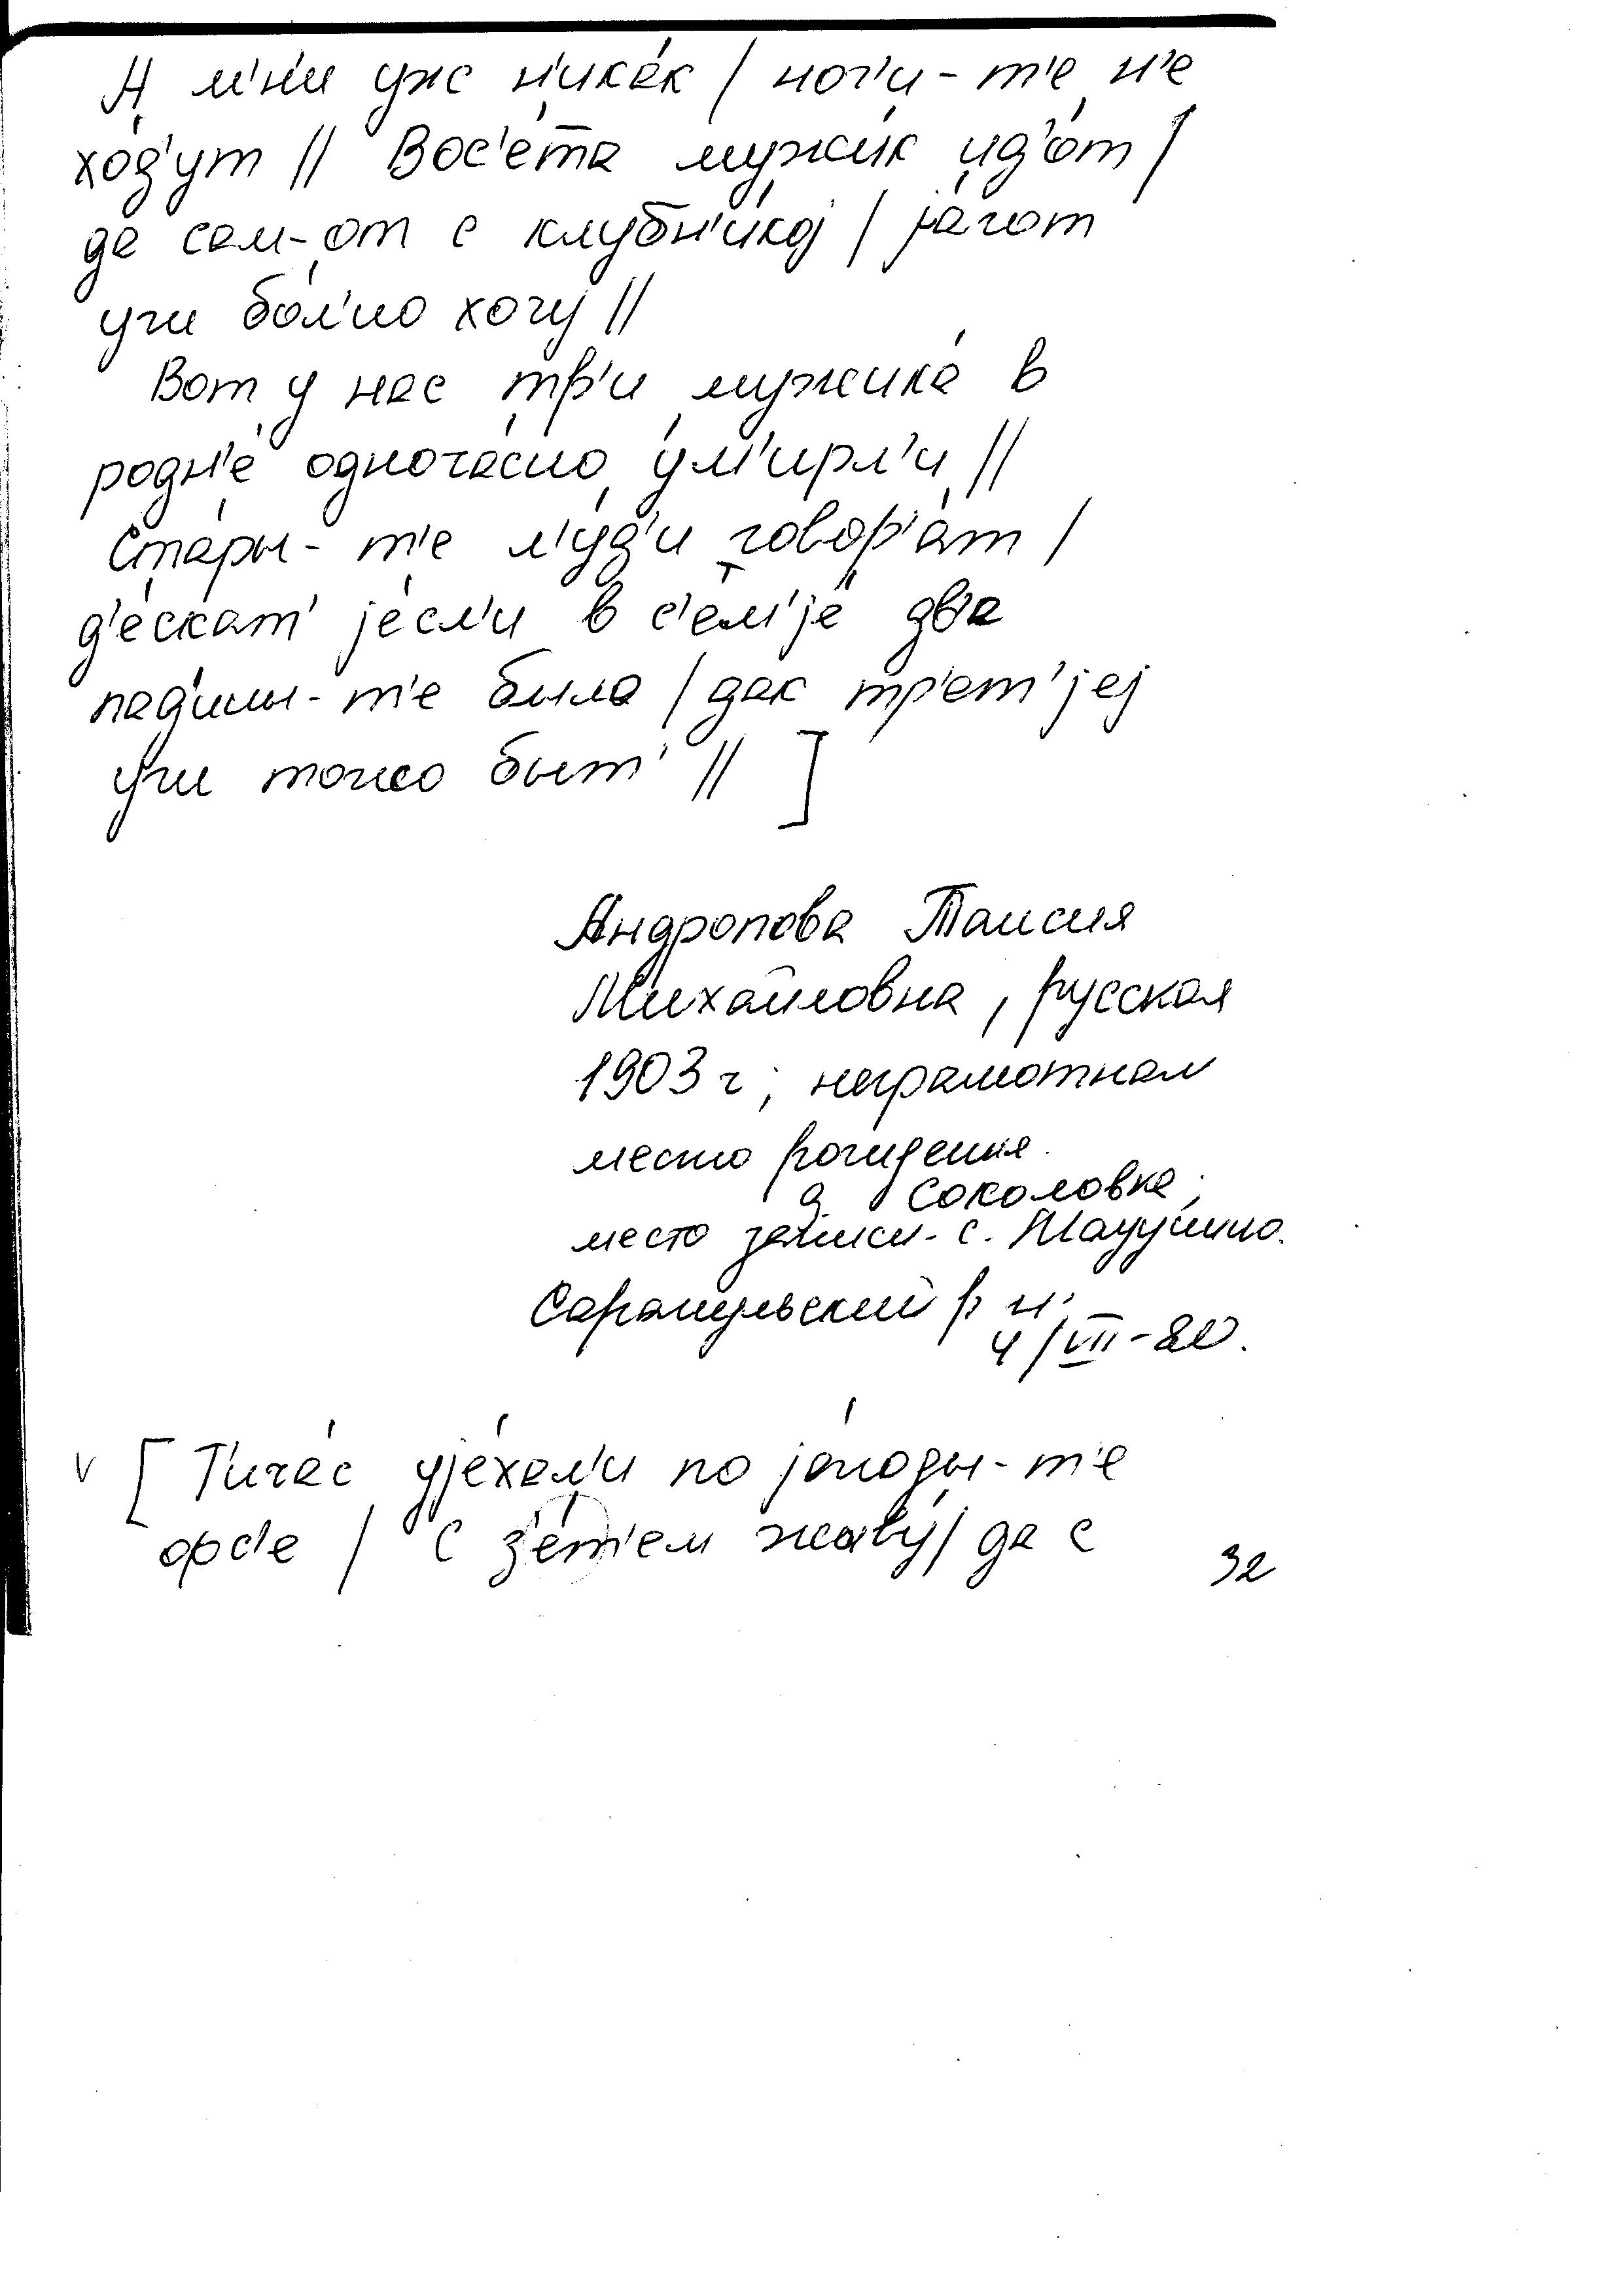 А м'н'и уж н'икак / ног'и-т'е н'е
ход'ут // Вос'ета мужик ид'от /
да сам-от с клубн'икој / јагот
уж бол'но хочу //
Вот у нас тр'и мужика в
родн'е одночасно ум'ирл'и //
Стары-т'е л'уд'и говор'ат /
д'ескат' јесл'и в с'ем'је два
пад'ины-т'е было / дак тр'ет'јеј
уж точно быт' // ]
Андропова Таисия
Михайловна, русская
1903 г; неграмотная
место рождения
д. Соколовка;
место записи - с.
Сарапульский р-н.
4/VII-80.
v [ Т'ичас ујехал'и по јагоды-т'е
фс'е / С з'ет'ем живу / да с
32